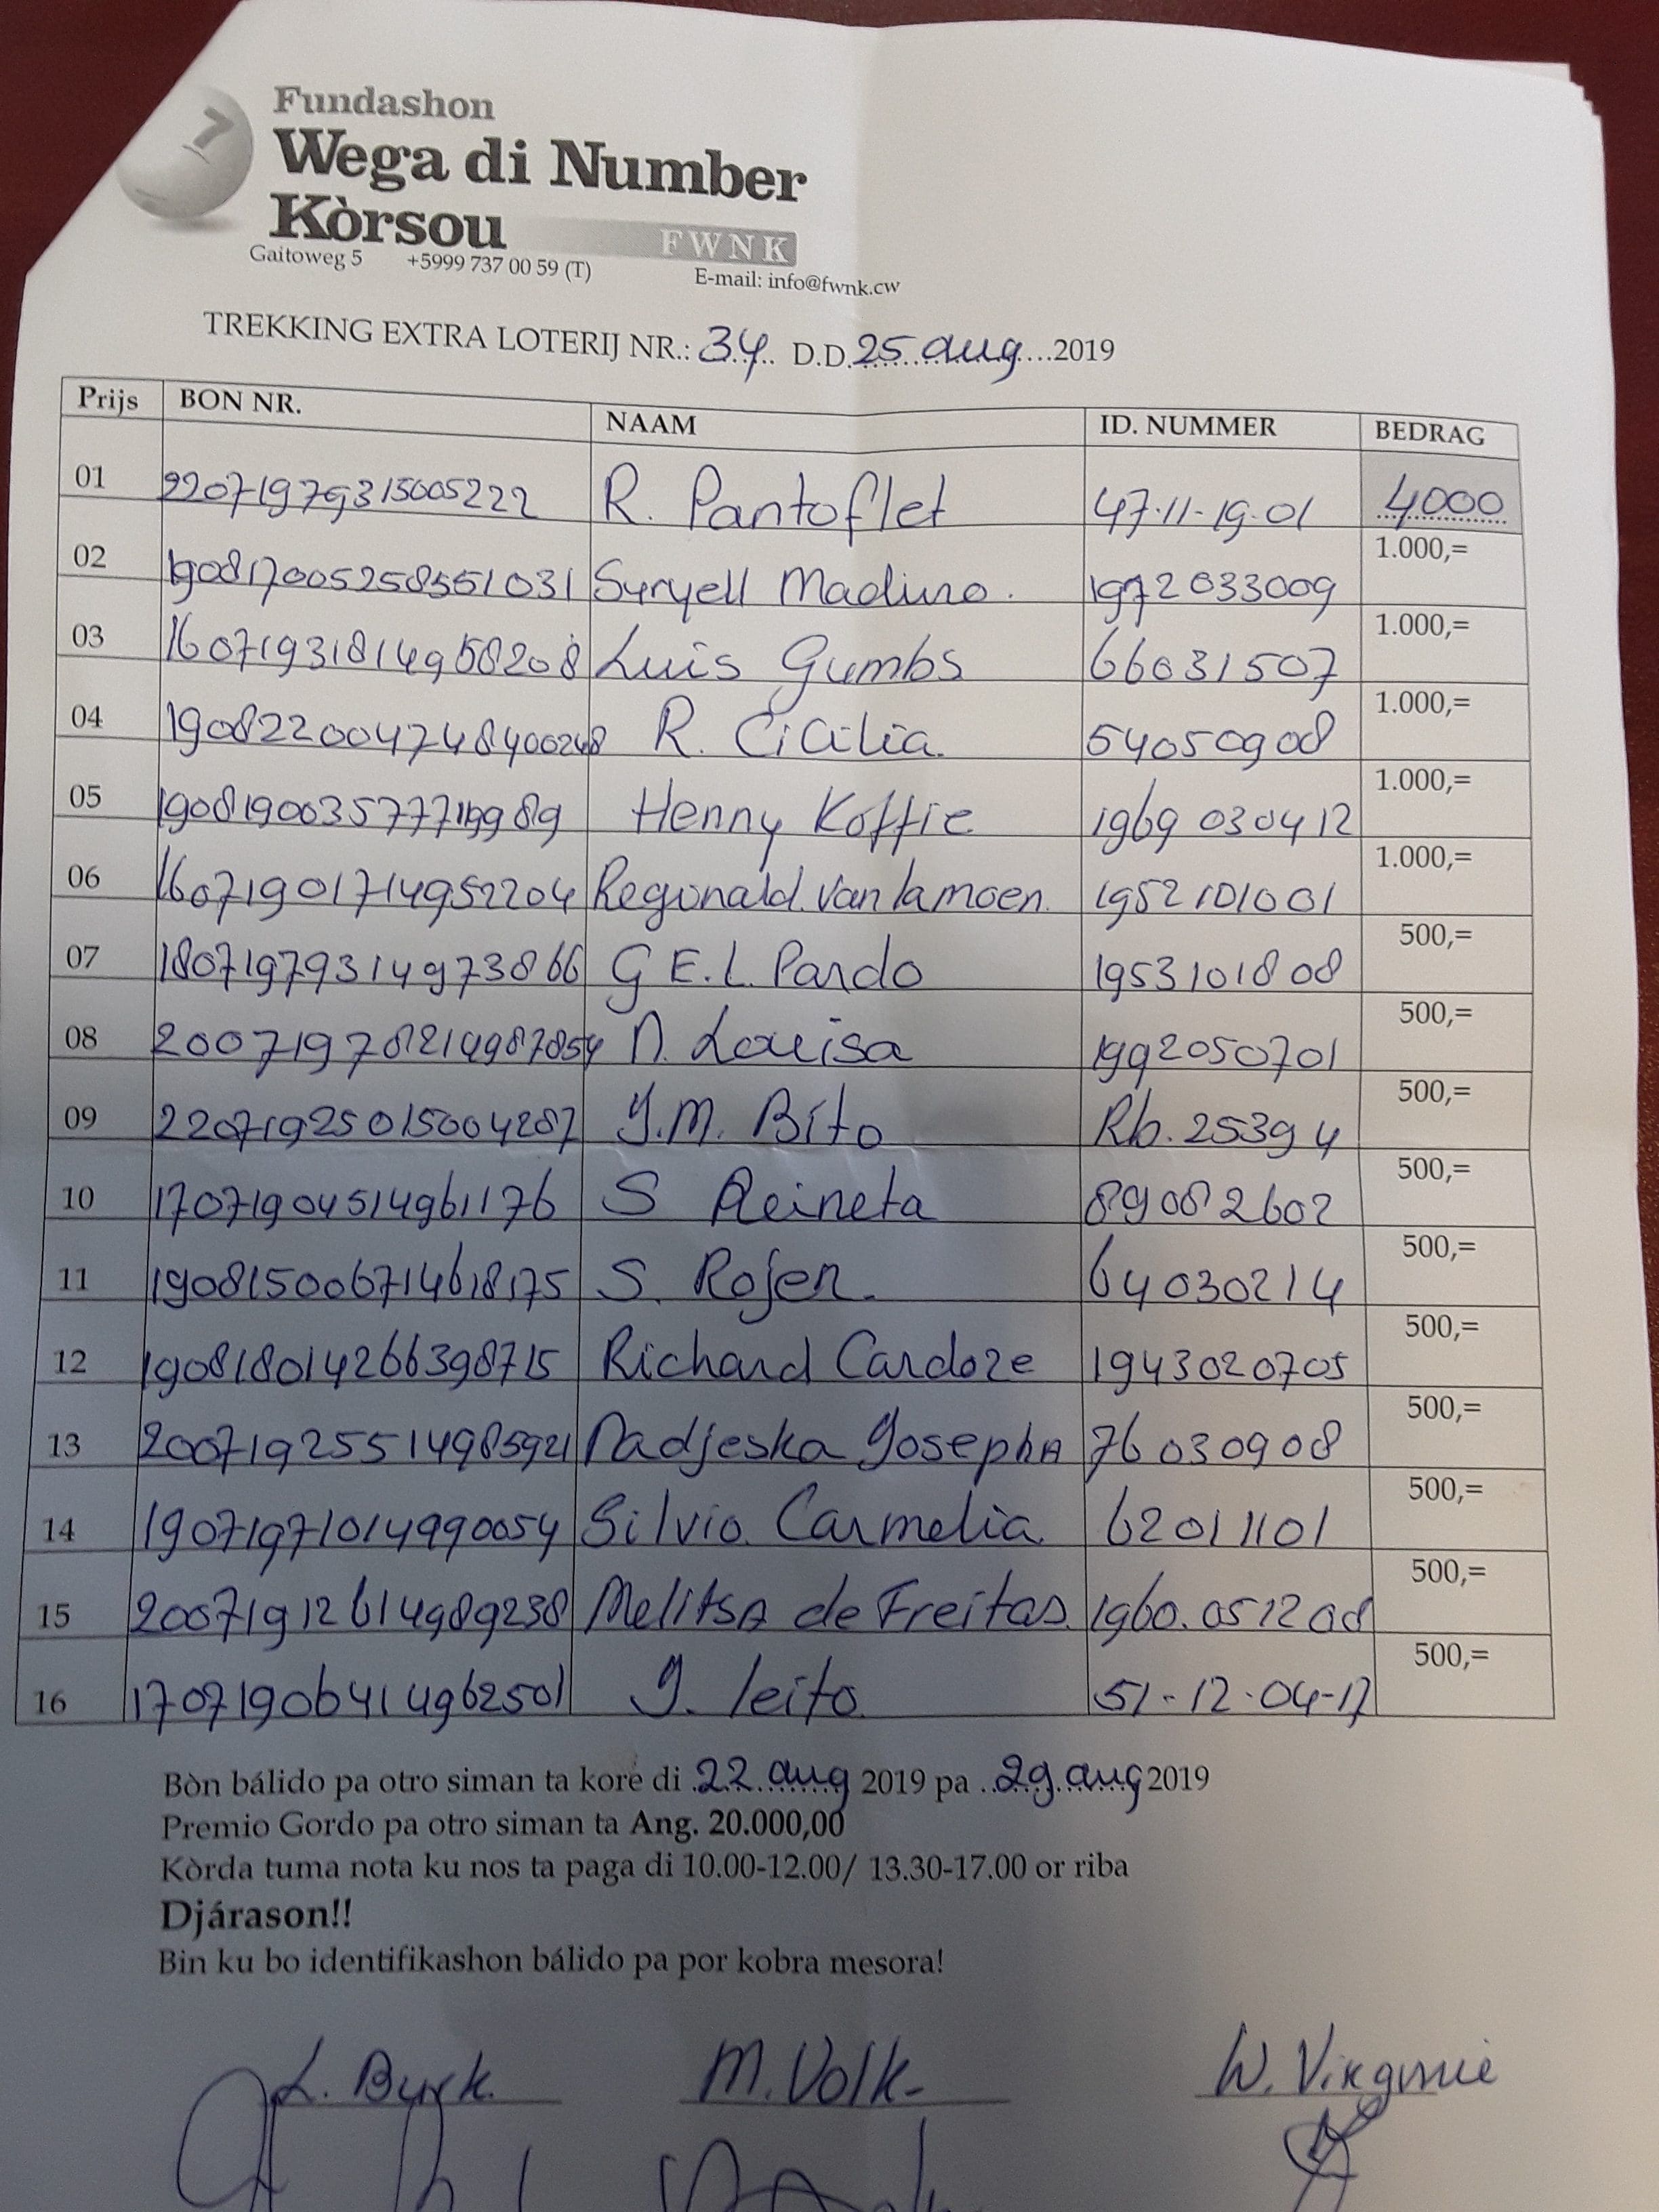 7
Fundashon
Wega di Number
Kòrsou
FWNK
Gaitoweg 5 +5999 737 00 59 (T) E-mail: info@fwnk.cw
TREKKING EXTRA LOTERIJ NR.: 34 D.D. 25 aug 2019
Prijs BON NR. NAAM ID. NUMMER BEDRAG
01 22071979315005222 R. Pantoflet 47-11-19-01 4000
02 190817005258551031 Suryell Maduro. 1972033009 1.000,=
03 16071931814958208 Luis Gumbs 66031507 1.000,=
04 190822004748400248 R. Cicilia. 54050908 1.000,=
05 Henny Koffie 1969 030412 1.000,=
06 16071901714952204 Regunald van lamoen. 1952101001 1.000,=
07 18071979314973866 G E.L. Pardo 1953101808 500,=
08 20071978214987854 N. Louisa 1992050701 500,=
09 22071925015004287 J.M. Bito Rb. 25394 500,=
10 17071904514961176 S Reineta 89082602 500,=
11 190815006714618175 S. Rojer. 64030214 500,=
12 190818014266398715 Richard Cardoze 1943020705 500,=
13 20071925514985921 Nadjeska Josepha 76030908 500,=
14 19071971014990054 Silvio Carmelia 62011101 500,=
15 20071912614989238 Melitsa de Freitas. 1960.051208 500,=
16 17071906414962501 J. leito 51-12-04-17 500,=
Bòn bálido pa otro siman ta kore di 22 aug 2019 pa 29 aug 2019
Premio Gordo pa otro siman ta Ang. 20.000,00
Kòrda tuma nota ku nos ta paga di 10.00-12.00/ 13.30-17.00 or riba
Djárason!!
Bin ku bo identifikashon bálido pa por kobra mesora!
L. Byrk. M. Volk- W. Virginie